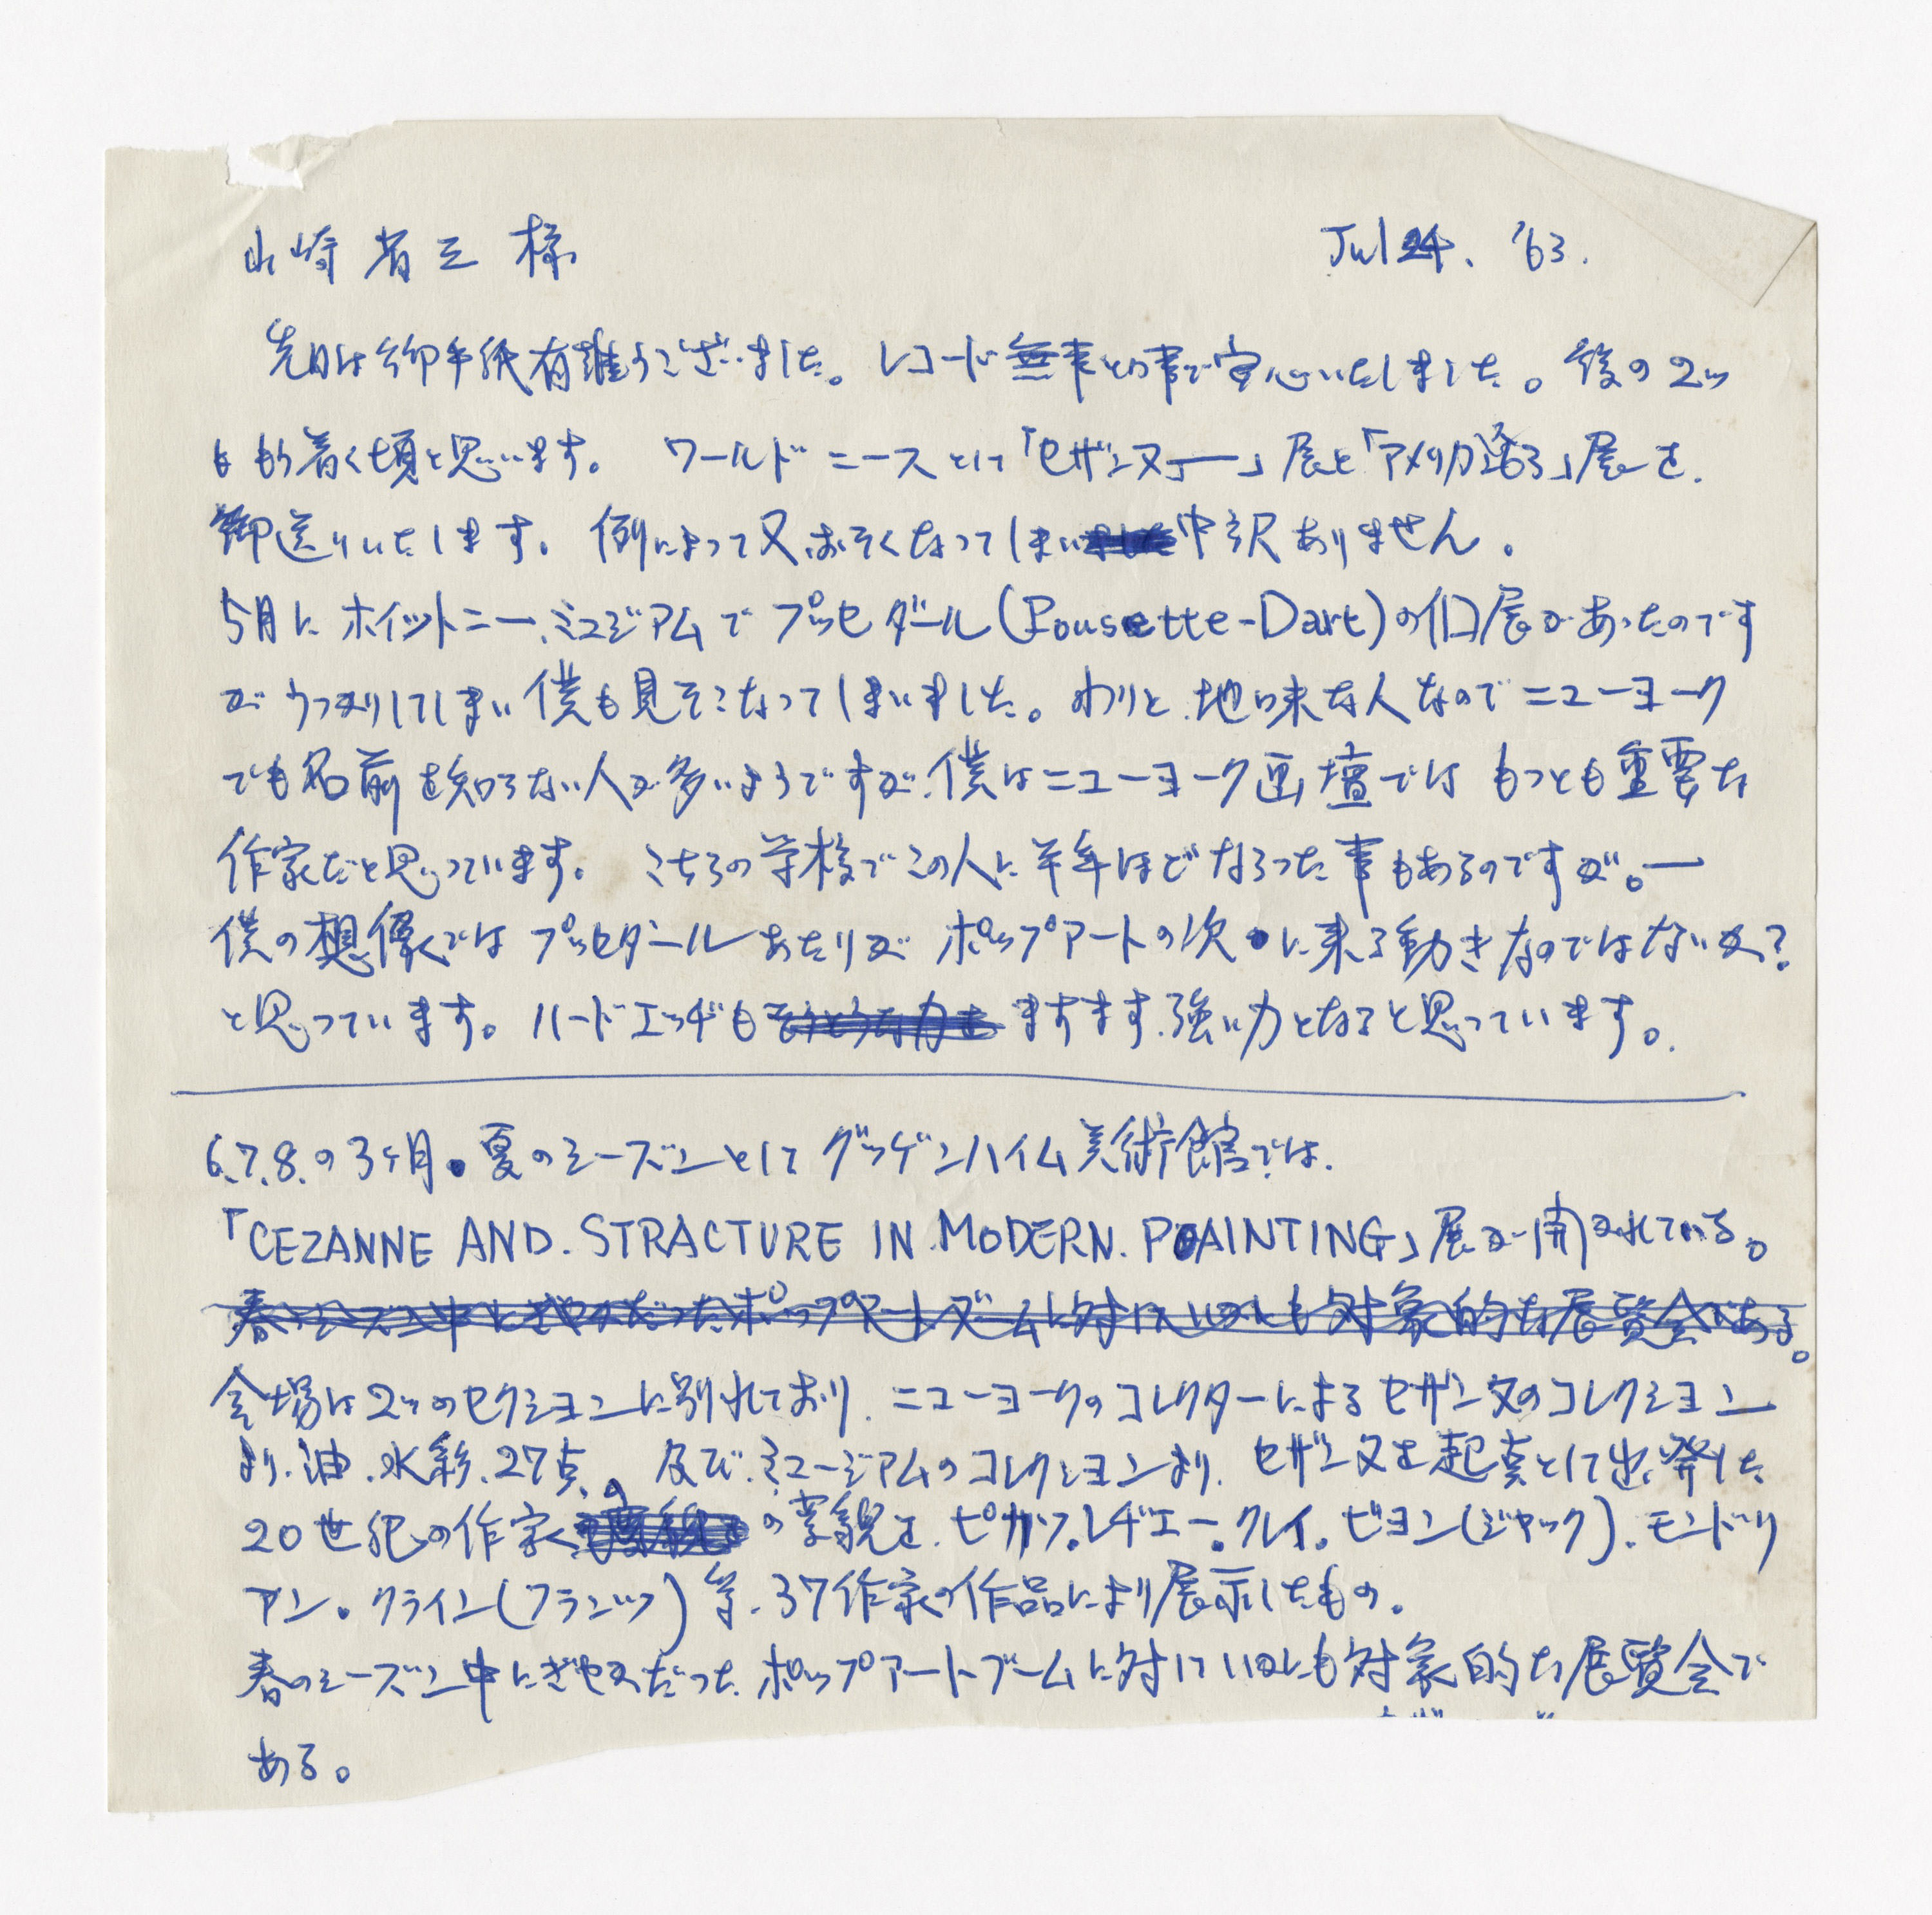 山崎省三様 Jul 24. '63.
先日は御手紙有難うございました。レコード無事との事で安心いたしました。後の2つ
ももう着く頃と思います。ワールドニースとして「セザンヌ」展と「アメリカ」展を.
御送りいたします。例によって又おそくなってしまい申訳ありません。
5月にホイットニー.ミュジアムでプッセダール(Pousette-Dart)の個展があったのです
がうっかりしてしまい僕も見そこなってしまいました。わりと地味な人なのでニューヨーク
でも名前を知らない人が多いようですが.僕はニューヨーク画壇ではもっとも重要な
作家だと思っています。こちらの学校でこの人に半年ほどならった事もあるのですが。—
僕の想像ではプッセダールあたりがポップアートの次に来る動きなのではないか?
と思っています。ハードエッヂもますます.強い力となると思っています。
6.7.8.の3ヶ月。夏のシーズンとしてグッゲンハイム美術館では.
「CEZANNE AND. STRACTURE IN. MODERN. PAINTING」展が開かれている。
春のシーズン中にぎやかだったポップアートブームに対していかにも対象的な展覧会である。
会場は2つのセクションに別れており.ニューヨークのコレクターによるセザンヌのコレクション
より.油.水彩.27点。及び.ミュージアムのコレクションより.セザンヌを起点として出発した
20世紀の作家の業績を.ピカソ。レヂエー。クレイ。ビヨン(ジャック).モンドリ
アン。クライン(フランツ)等.37作家の作品により展示したもの。
春のシーズン中にぎやかだったポップアートブームに対していかにも対象的な展覧会で
ある。